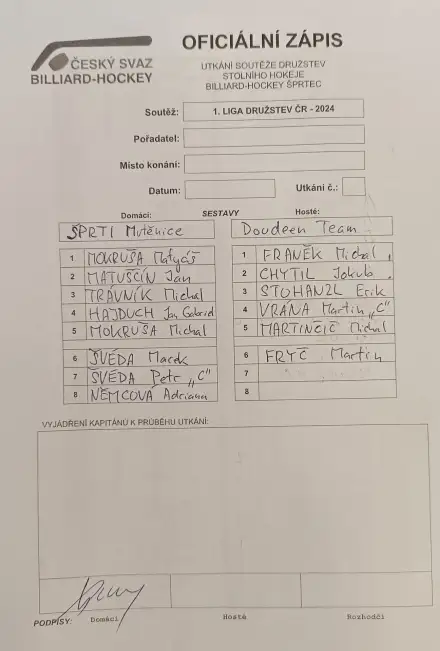 OFICIÁLNÍ ZÁPIS
ČESKÝ SVAZ
BILLIARD-HOCKEY
UTKÁNÍ SOUTĚŽE DRUŽSTEV
STOLNÍHO HOKEJE
BILLIARD-HOCKEY ŠPRTEC
Soutěž: 1. LIGA DRUŽSTEV ČR - 2024
Pořadatel:
Místo konání:
Datum: Utkání č.:
Domácí: SESTAVY Hosté:
ŠPRTI Mutěnice Doudeen Team
1 MOKRUŠA Matyáš 1 FRANĚK Michal
2 MATUŠČÍN Jan 2 CHYTIL Jakub
3 TRÁVNÍK Michal 3 STOHANZL Erik
4 HAJDUCH Jan Gabriel 4 VRÁNA Martin „C"
5 MOKRUŠA Michal 5 MARTINČIČ Michal
6 ŠVÉDA Marek 6 FRYČ Martin
7 ŠVÉDA Petr „C" 7
8 NĚMCOVÁ Adriana 8
VYJÁDŘENÍ KAPITÁNŮ K PRŮBĚHU UTKÁNÍ:
PODPISY: Domácí Hosté Rozhodčí